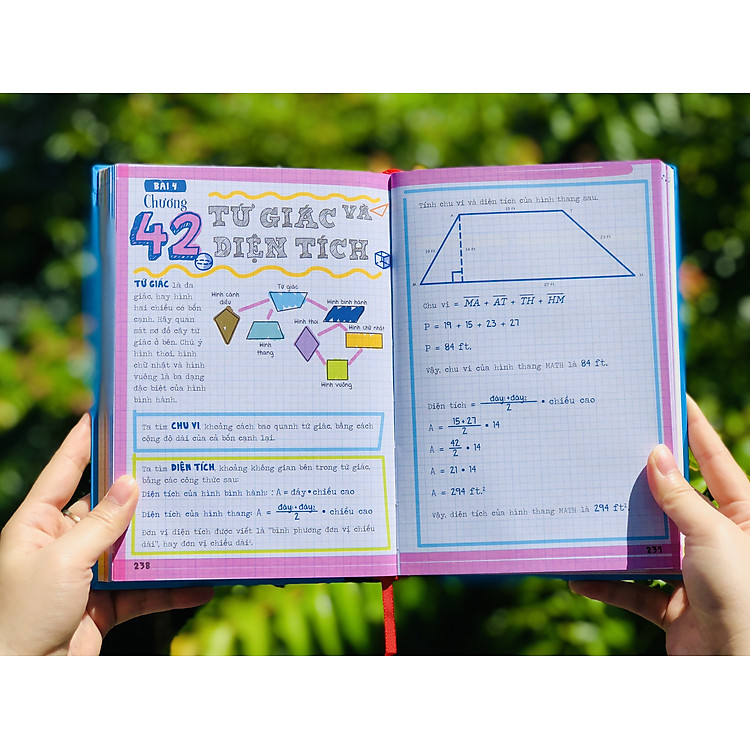 BÀI 4
Chương
42
TỨ GIÁC VÀ
DIỆN TÍCH
TỨ GIÁC là đa
giác, hay hình
hai chiều có bốn
cạnh. Hãy quan
sát sơ đồ cây tứ
giác ở bên. Chú ý
hình thoi, hình
chữ nhật và hình
vuông là ba dạng
đặc biệt của hình
bình hành.
Tứ giác
Hình cánh
diều
Hình bình hành
Hình thoi
Hình chữ nhật
Hình
thang
Hình vuông
Ta tìm CHU VI, khoảng cách bao quanh tứ giác, bằng cách
cộng độ dài của cả bốn cạnh lại.
Ta tìm DIỆN TÍCH, khoảng không gian bên trong tứ giác,
bằng các công thức sau:
Diện tích của hình bình hành : A = đáy • chiều cao
Diện tích của hình thang: A = (đáy₁ + đáy₂)/2 • chiều cao
Đơn vị diện tích được viết là "bình phương đơn vị chiều
dài", hay đơn vị chiều dài².
238
Tính chu vi và diện tích của hình thang sau.
A
15 ft
T
19 ft
14 ft
23 ft
M
27 ft
H
Chu vi = MA + AT + TH + HM
P = 19 + 15 + 23 + 27
P = 84 ft.
Vậy, chu vi của hình thang MATH là 84 ft.
Diện tích = (đáy₁ + đáy₂)/2 • chiều cao
A = (15 + 27)/2 • 14
A = 42/2 • 14
A = 21 • 14
A = 294 ft.²
Vậy, diện tích của hình thang MATH là 294 ft².
239